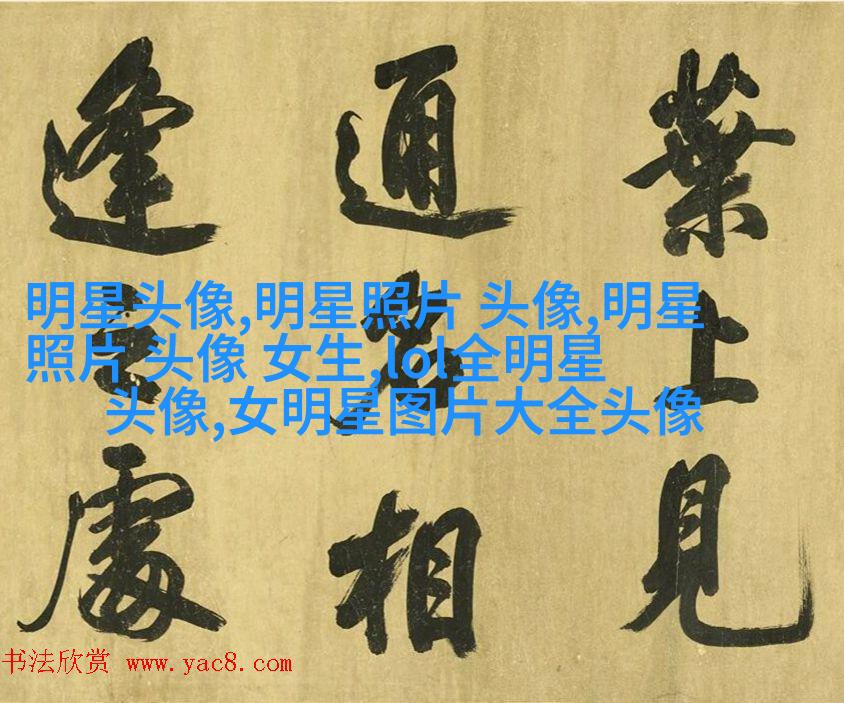 葉上見
通相
逢處
明星头像,明星照片 头像,明星
照片 头像 女生,lol全明星
头像,女明星图片大全头像
书法欣赏 www.yac8.com